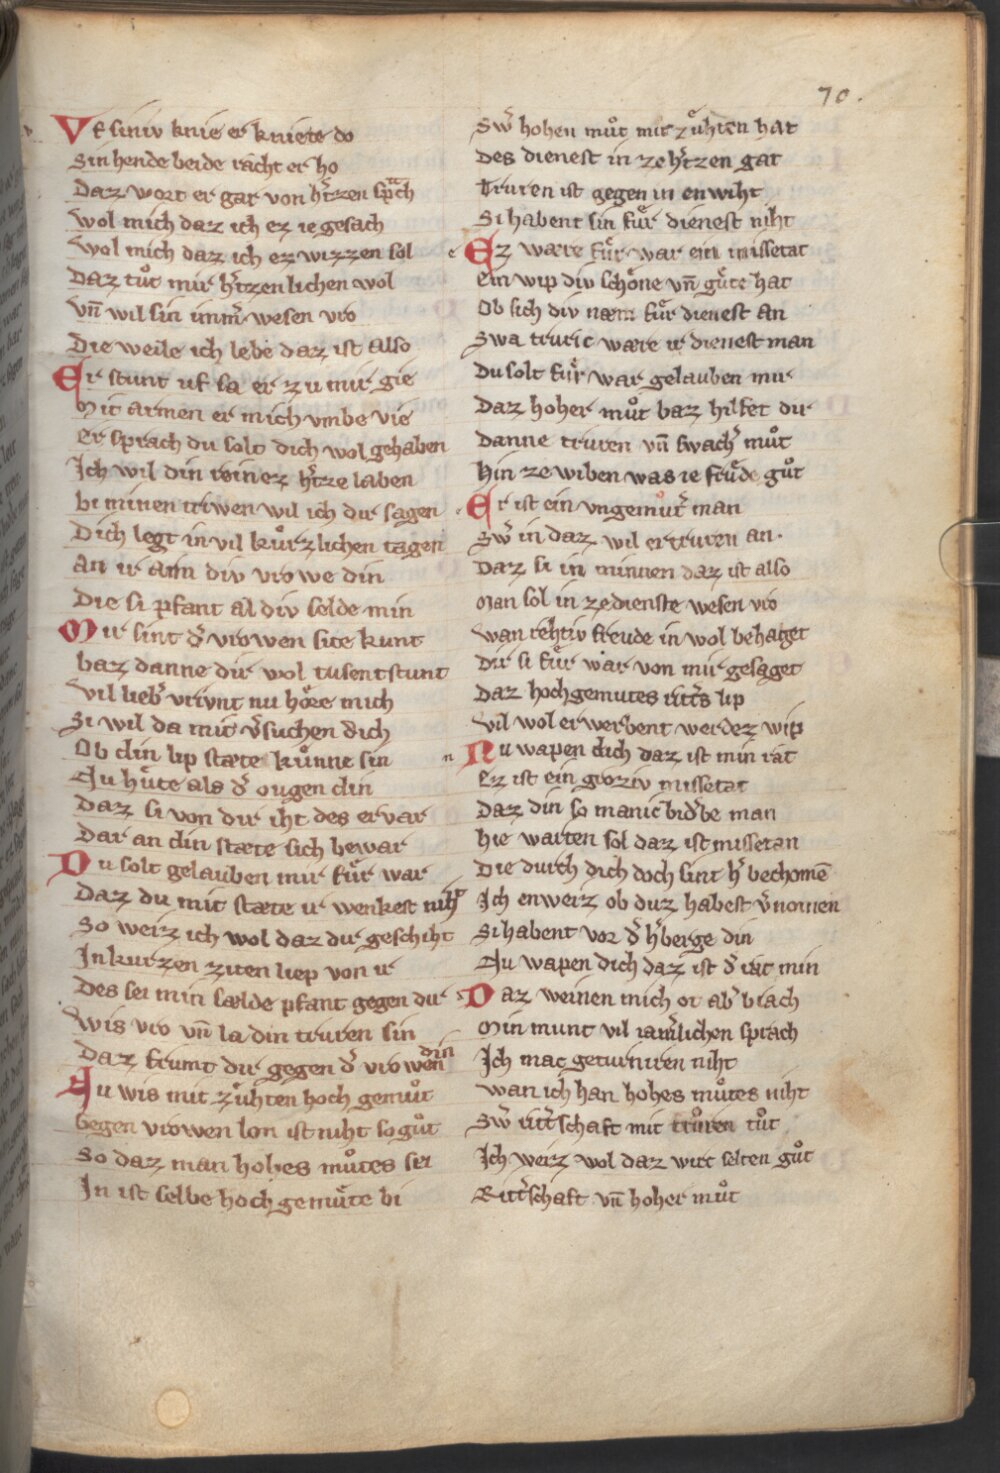 70.
Vf siniv knie er kniete do
Sin hende beide racht er ho
Daz wort er gar von h̾tzen sprach
Wol mich daz ich ez ie gesach
Wol mich daz ich ez wizzen sol
Daz tuͦt mir h̾tzenlichen wol
Vn̄ wil sin imm̾ wesen vro
Die weile ich lebe daz ist also
Er stunt uf sa er zu mir gie
Mit armen er mich vmbe vie
Er sprach du solt dich wol gehaben
Ich wil din reinez h̾tze laben
bi minen triwen wil ich dir sagen
Dich legt in vil kuͤrzlichen tagen
An ir arm div vrowe din
Die si pfant al div selde min
Mir sint d̾ vrowen site kunt
baz danne dir wol tusentstunt
Vil lieb̾ vrivnt nu hoͤre mich
Si wil da mit v̾suchen dich
Ob din lip stæte kuͤnne sin
Nu huͤte als d̾ ougen din
Daz si von dir iht des ervar
Dar an din stæte sich bewar
Du solt gelauben mir fuͤr war
Daz du mit stæte ir wenkest niht
So weiz ich wol daz dir geschiht
In kurzen ziten liep von ir
Des sei min sælde pfant gegen dir
Wis vro vn̄ la din truren sin
Daz frumt dir gegen d̾ vrowen din
Nu wis mit zuͤhten hoch gemuͦt
Gegen vrowen lon ist niht so guͦt
So daz man hohes muͦtes sei
In ist selbe hoch gemuͤte bi
Sw̾ hohen muͦt mit zuͤhten hat
Des dienest in ze h̾tzen gat
Truren ist gegen in enwiht
Si habent sin fuͤr dienest niht
e Ez wære fuͤr war ein missetat
Ein wip div schoͤne vn̄ guͤte hat
Ob sich div næm fuͤr dienest an
Swa truric wære ir dienest man
Du solt fuͤr war gelauben mir
Daz hoher muͦt baz hilfet dir
Danne truren vn̄ swach̾ muͦt
Hin ze wiben was ie freude guͦt
Er ist ein vngemuͦt̾ man
Sw̾ in daz wil ertruren an.
Daz si in minnen daz ist also
Man sol in ze dienste wesen vro
Wan rehtiv freude in wol behaget
Dir si fuͤr war von mir gesaget
Daz hochgemutes ritt̾s lip
Vil wol erwerbent werdez wip
n Nu wapen dich daz ist min rat
Ez ist ein groziv missetat
Daz din so manic bid̾be man
Hie warten sol daz ist missetan
Die durch dich doch sint h̾ bechomē
Ich enweiz ob duz habest v̾nomen
Si habent vor d̾ h̾berge din
Nu wapen dich daz ist d̾ rat min
Daz weinen mich ot ab̾ brach
Min munt vil iam̾lichen sprach
Ich mac geturniren niht
Wan ich han hohes muͦtes niht
Sw̾ ritt̾schaft mit truͦren tuͦt
Ich weiz wol daz wirt selten guͦt
Ritt̾schaft vn̄ hoher muͦt